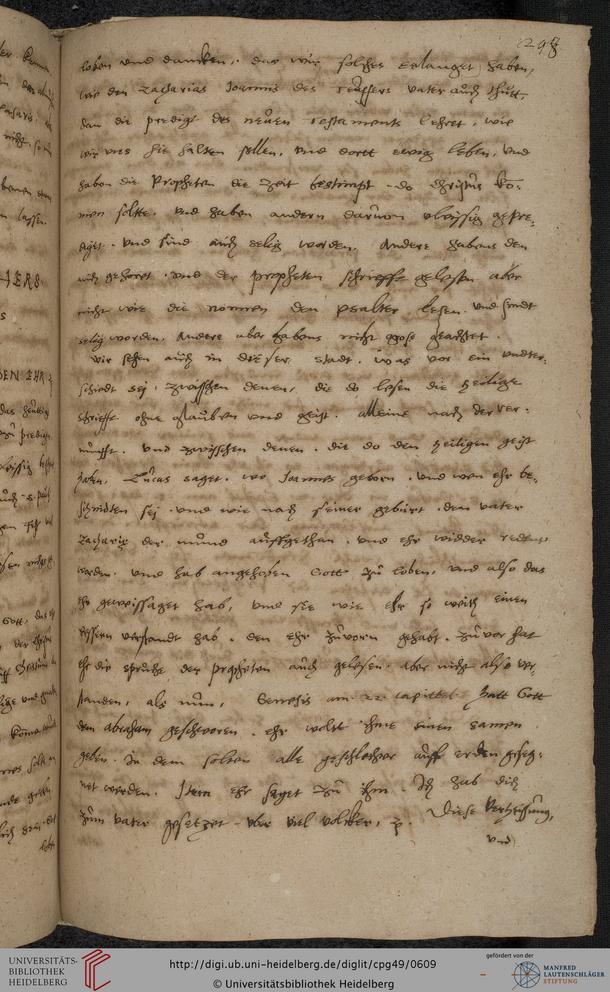 295
loben und dancken, das wir solches erlanget haben,
wie den Zacharias Joannis des teuffers vater auch thutt,
dan die predigt des neuen testaments lehret, wie
wir uns hie halten sollen, und dortt ewig leben, und
haben die Propheten die zeit bestimpt do Christus ko-
men soltte. und haben andern darvon vleissig gepre-
diget. und sind auch selig worden. Andere habens den
auch gehoret und der propheten schriefft gelesen aber
nicht wie die nonnen den psalter lesen und sindt
selig worden. Andere aber habens nicht gros geachtet.
wir sehen auch in dieser stadt. was vor ein undter-
schiedt sej, zwisschen denen, die do lesen die heilige
schriefft ohne glauben und geist. alleine nach der ver-
nunfft. und zwisschen denen. die do den heiligen geist
haben. Lucas saget. wo Joannes geborn. und wen ehr be-
schnidten sej. und wie nach seiner geburt. dem vater
Zacharie der mund auffgethan. und ehr widder redent
worden. und hab angehoben Gott zu loben. und also das
ehr geweissaget hab, und sie wie ehr so weith einen
bessern verstandt hab. den ehr zuvorn gehabt. zuvor hat
ehr die spruche der propheten auch gelesen. aber nicht also ver-
standen, als nun, Genesis am 22 capittel hatt Gott
dem abraham geschworen. ehr wolle ihme einen samen
geben. in dem solten alle geschlechter auff erden geseg-
net werden. Item ehr saget zu ihm. Ich hab dich
zum vater gesetzet uber viel volcker, etc. Diese Verheissung,
und
UNIVERSITÄTS-
BIBLIOTHEK
HEIDELBERG
http://digi.ub.uni-heidelberg.de/diglit/cpg49/0609
© Universitätsbibliothek Heidelberg
gefördert von der
MANFRED
LAUTENSCHLÄGER
STIFTUNG